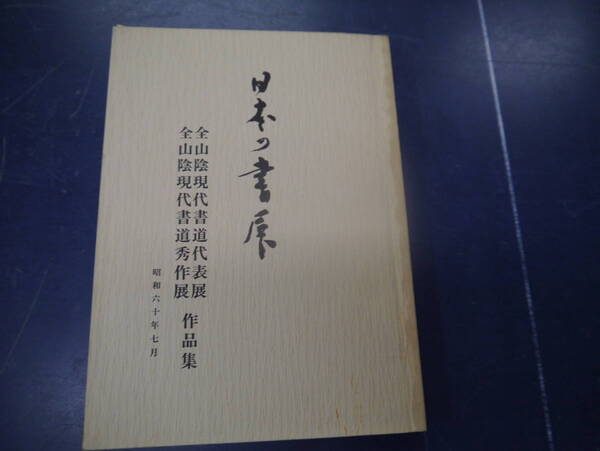 日本の書展
全山陰現代書道代表展
全山陰現代書道秀作展
作品集
昭和六十年七月